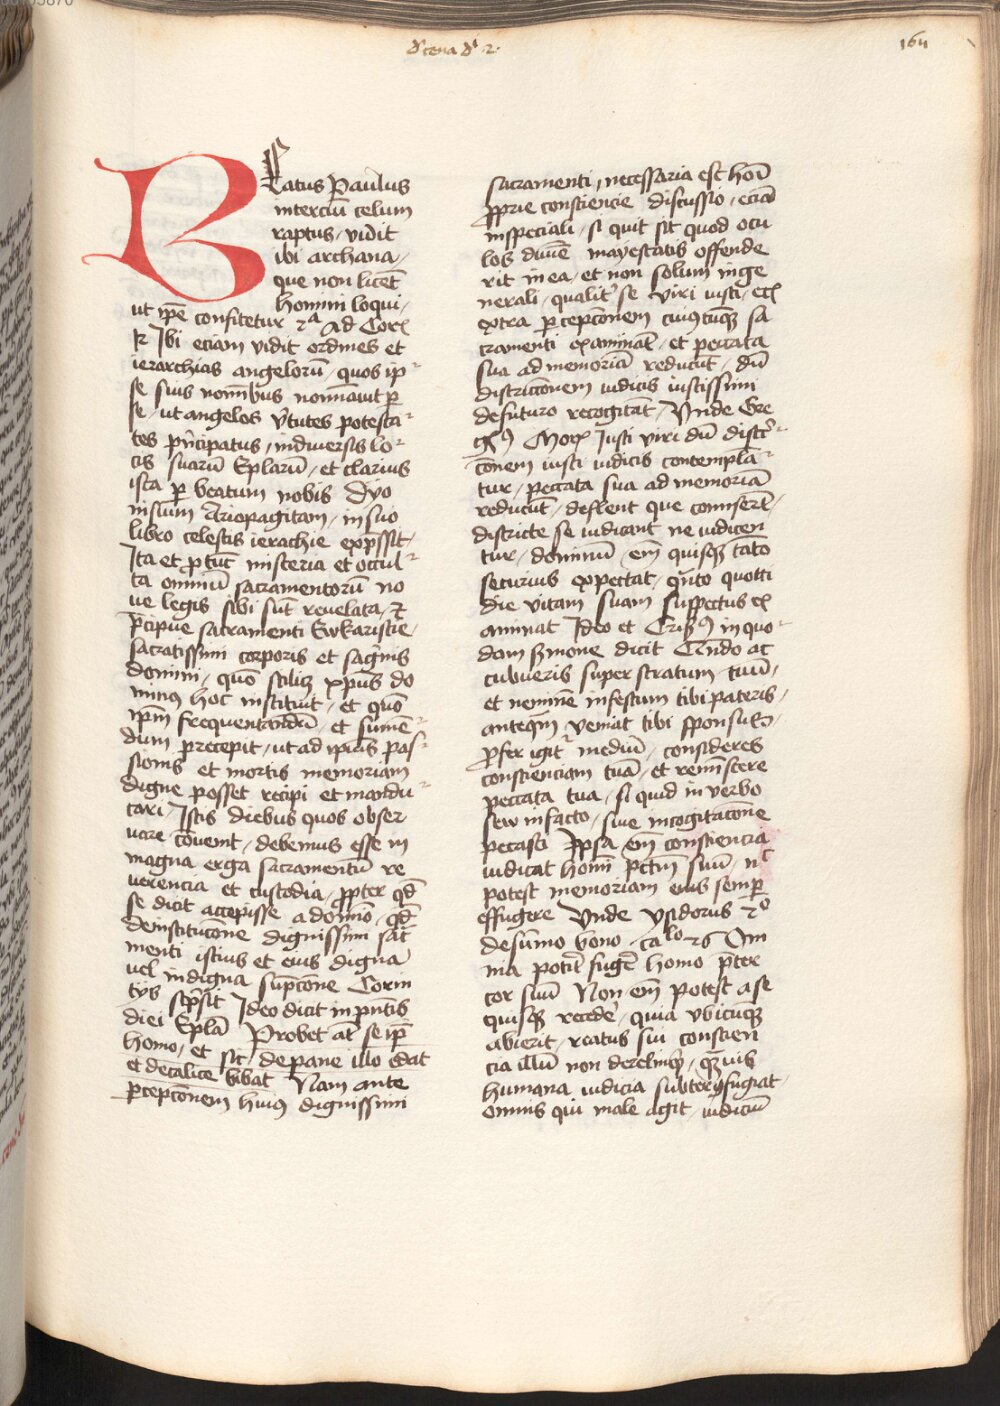 De cena dni 2.
164
BEatus Paulus
interciu celum
raptus, vidit
ibi archana,
que non licet
homini loqui,
ut ipe confitetur 2ª Ad Cor
12 Ibi eciam vidit ordines et
ierarchias angelorū, quos ip-
se suis nominibus nominauit p
se, ut angelos v̄tutes potesta-
tes p̄ncipatus, indiuersis lo-
cis suarū Eplarū, et clarius
ista p beatum nobis Dyo
nisium Ariopagitam, insuo
libro celestis ierachie exp̄ssit,
Ita et p tūc misteria et occul-
ta omniū sacramentorū no
ue legis sibi sūt reuelata, et
p̄cipue sacramenti Ewkaristie,
sacratissimi corporis et sag̃nis
domini, quō scilicz xpūs do
minꝰ hoc instituit, et quō
ipm̄ frequentandū, et sumē-
dum precepit, ut ad ipius pas-
sionis et mortis memoriam
digne posset recipi et mandu-
cari, Istis diebus quos obser
uare cōuenit, debemus esse in
magna erga sacramentū re
uerencia et custodia, ꝓpter qd̄
se dicit accepisse a domīo, qd̄
deinstitucōne dignissimi sac̄
menti istius et eius digna
uel indigna supcōne Corin
tijs sc̄psit Ideo dicit in p̄ntis
diei Eplā Probet at̄ seip̄
homo, et sic de pane illo edat
et decalice bibat Nam ante
percepcōnem huiꝰ dignissimi
sacramenti, necessaria est hoī
ꝓprie consciencie discussio, eciā
inspeciali, si quit sit quod ocu
los diuiē mayestatis offende
rit in ea, et non solum inge
nerali, qualit̄ se viri iusti, ecī
extra pcepcōnem cuiꝰcūqꝫ sa
cramenti examinat̄, et peccata
sua ad memoriā reducūt, dū
districcōnem iudicis iustissimi
defuturo recogitāt, Vnde Gre
gꝰ Mor Iusti viri dū distri-
cōnem iusti iudicis contemplā-
tur, peccata sua ad memoriā
reducūt, deflent que comiserūt,
districte se iudicant ne iudicen
tur, dominū em̄ quisqꝫ tāto
securius expectat, q̄nto quotti
die vitam suam suspectus ex
aminat Ideo et Crisꝰ in quo-
dam sermone dicit Cū ac
cubueris super stratum tuū,
et neminē infestum tibi pateris,
anteq̄m veniat tibi sponsus,
ꝓfer igit̄ mediū, consideres
conscienciam tuā, et reminiscere
peccata tua, si quid in verbo
seu infacto, siue incogitacōne
peccasti Ipsa em̄ consciencia
iudicat homī pctm̄ suū, nc̄
potest memoriam eius semp
effugere Vnde Ysidorus 2º
desūmo bono, ca lo 26 Om
nia potit̄ fuge homo p̄ter
cor suū Non em̄ potest a se
quisqꝫ recede, quia vbicūqꝫ
abierit, reatus sui conscien
cia illū non derelinq̄, qꝫuis
humana iudicia subterfugiat
omnis qui male agit, iudiciū